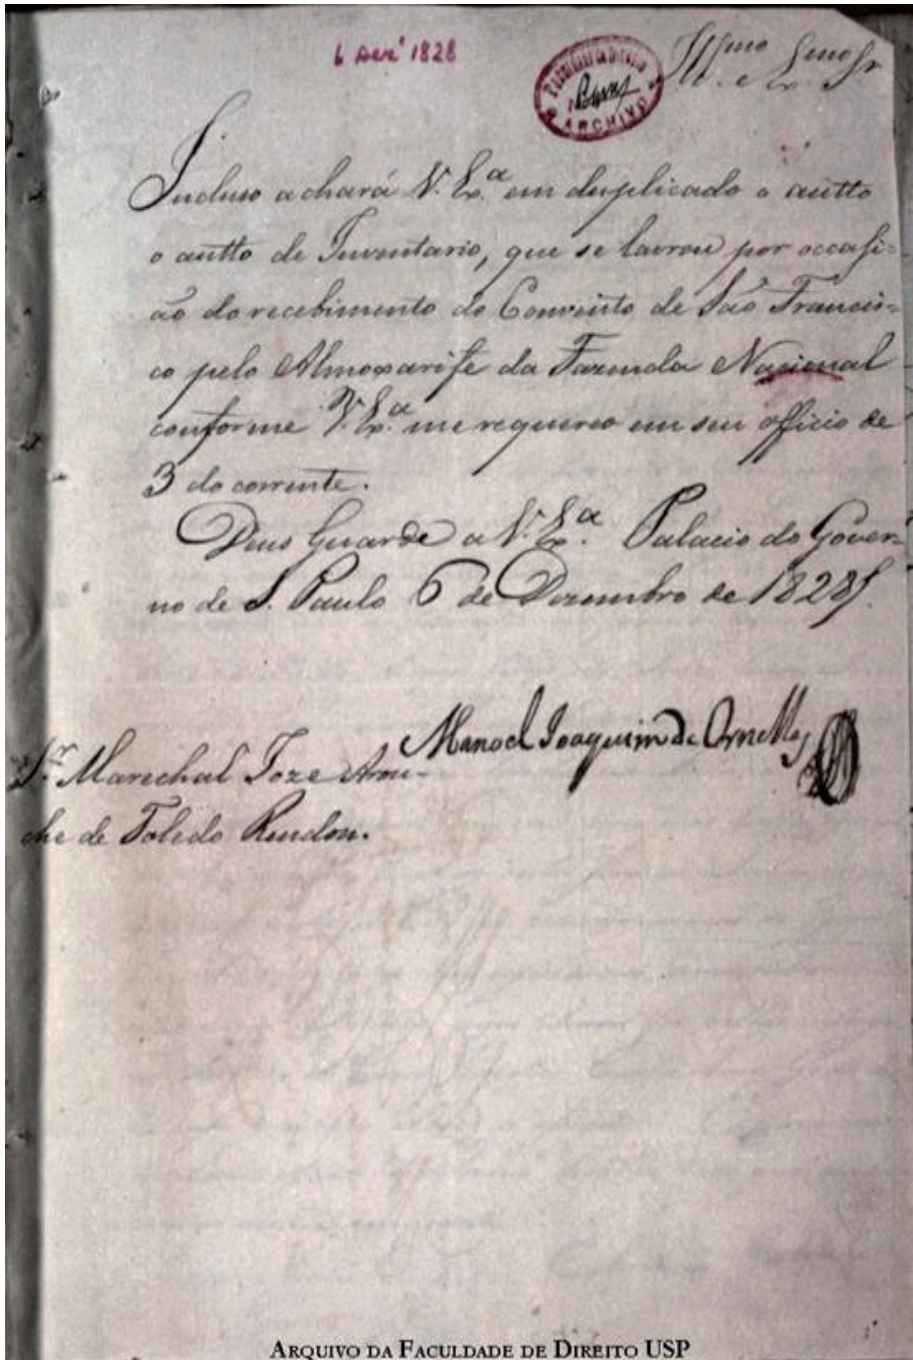 6 dezº 1828
Illmo e Exmo Sr
Incluso achará V. Exª em duplicado o autto
o autto de Inventario, que se lavrou por occasi-
ão do recebimento do Convento de São Francis-
co pelo Almoxarife da Fazenda Nacional
conforme V. Exª me requereo em seu officio de
3 do corrente.
Deus Guarde a V. Exª. Palacio do Gover-
no de S. Paulo 6 de Dezembro de 1828
Manoel Joaquim de Ornellas
Sr. Marechal Joze Arou-
che de Toledo Rendon.
ARCHIVO
ARQUIVO DA FACULDADE DE DIREITO USP